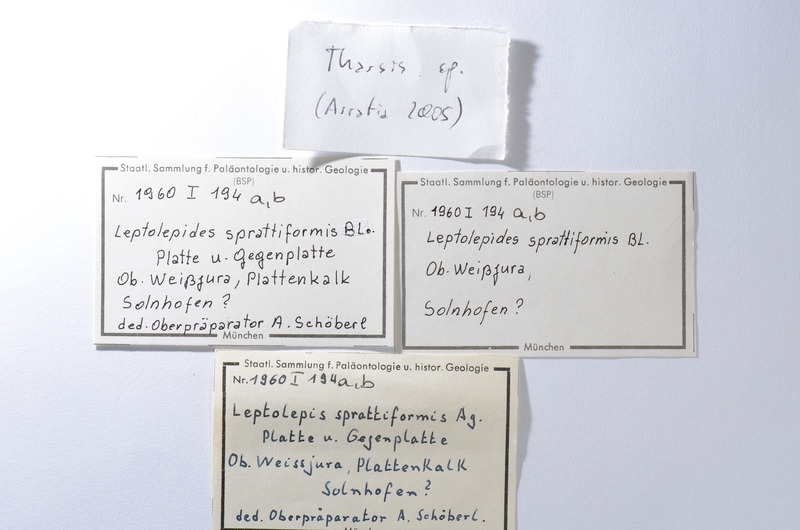 Tharsis sp.
(Arratia 2005)
Staatl. Sammlung f. Paläontologie u. histor. Geologie
(BSP)
Nr. 1960 I 194 a,b
Leptolepides sprattiformis BL.
Platte u. Gegenplatte
Ob. Weißjura, Plattenkalk
Solnhofen ?
ded. Oberpräparator A. Schöberl
München
Staatl. Sammlung f. Paläontologie u. histor. Geologie
(BSP)
Nr. 1960 I 194 a,b
Leptolepides sprattiformis BL.
Ob. Weißjura,
Solnhofen ?
München
Staatl. Sammlung f. Paläontologie u. histor. Geologie
Nr. 1960 I 194 a,b
Leptolepis sprattiformis Ag.
Platte u. Gegenplatte
Ob. Weissjura, Plattenkalk
Solnhofen ?
ded. Oberpräparator A. Schöberl.